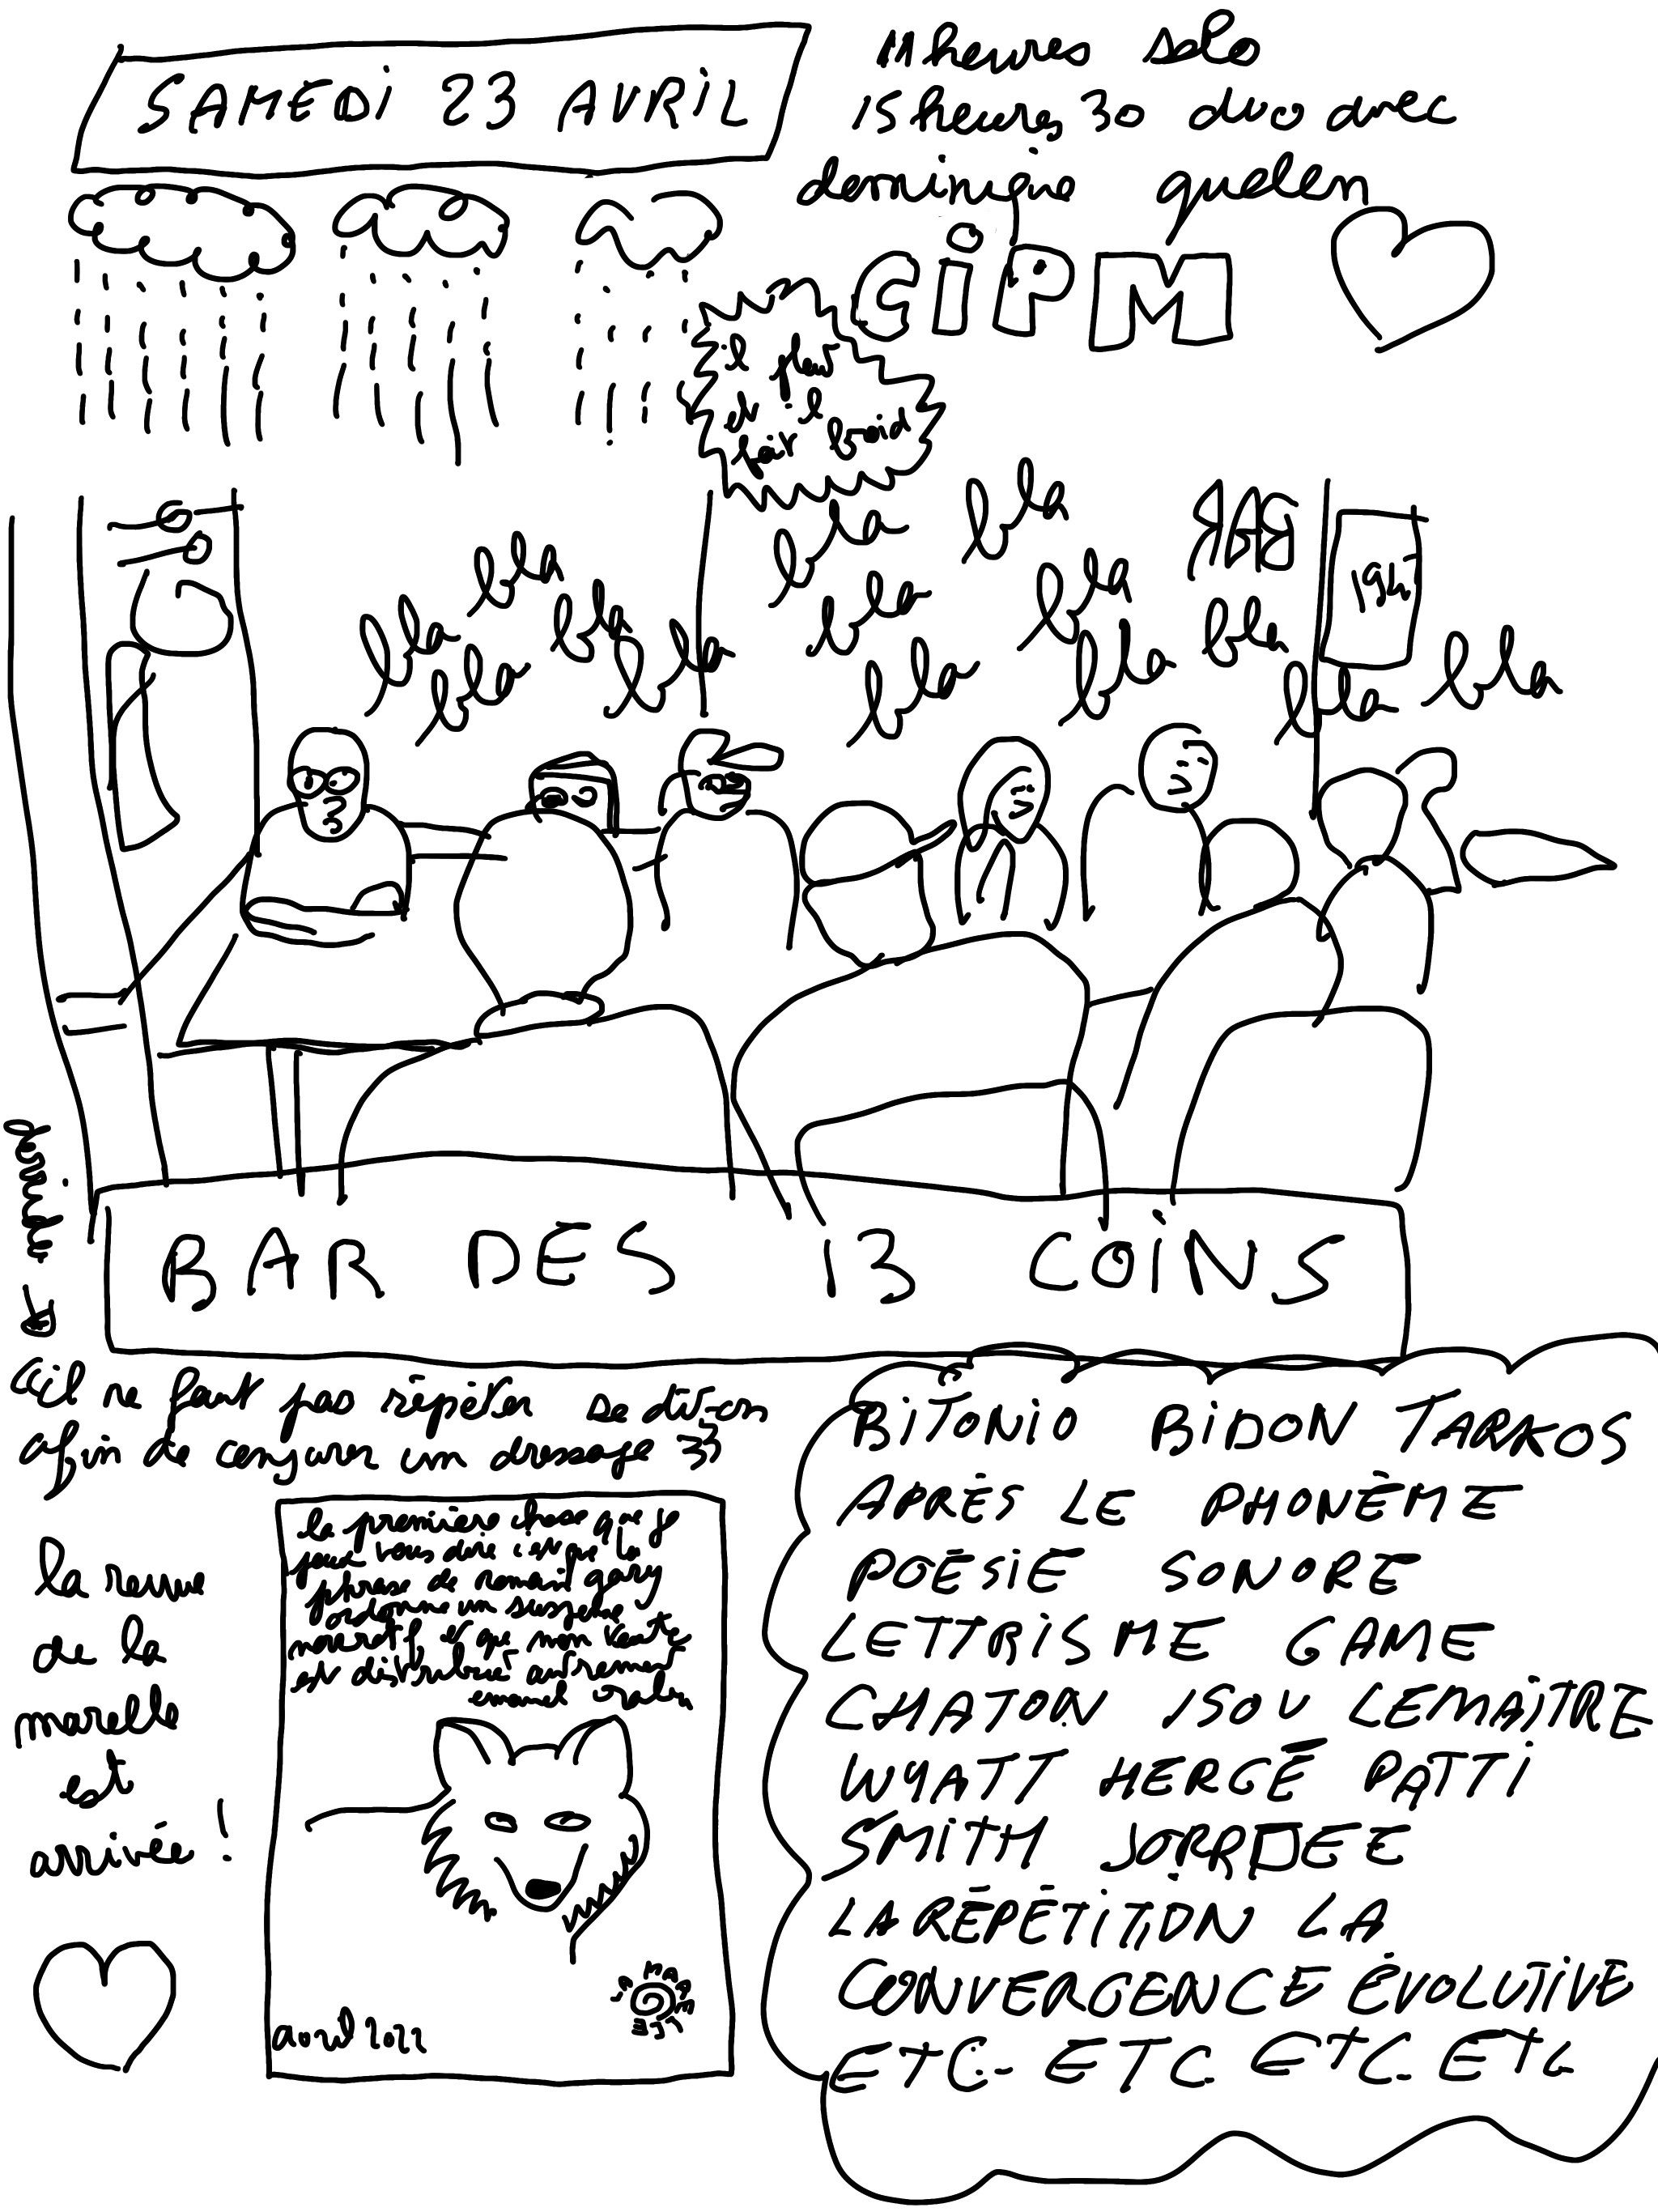 SAMEDI 23 AVRIL
11 heures solo
15 heures 30 duo avec
dominique quelen
CiPM
il pleut
et il
fait froid
bla bla bla bla bla
bla bla bla bla bla bla bla bla bla bla
BAR
BAR DES 13 COINS
"il ne faut pas répéter se dit-on
afin de conjurer un dressage"
la revue
de la
marelle
est
arrivée !
la première chose que je
peux vous dire c'est que la
phrase de romain gary
ordonne un suspense
narratif et que mon texte
est distribué autrement
emanuel
avril 2022
LA MARELLE
BITONIO BIDON TARKOS
APRÈS LE PHONÈME
POÉSIE SONORE
LETTRISME GAME
CHATON ISOU LEMAÎTRE
WYATT HERGÉ PATTI
SMITH JORRDEE
LA RÉPÉTITION LA
CONVERGENCE ÉVOLUTIVE
ETC- ETC ETC ETC